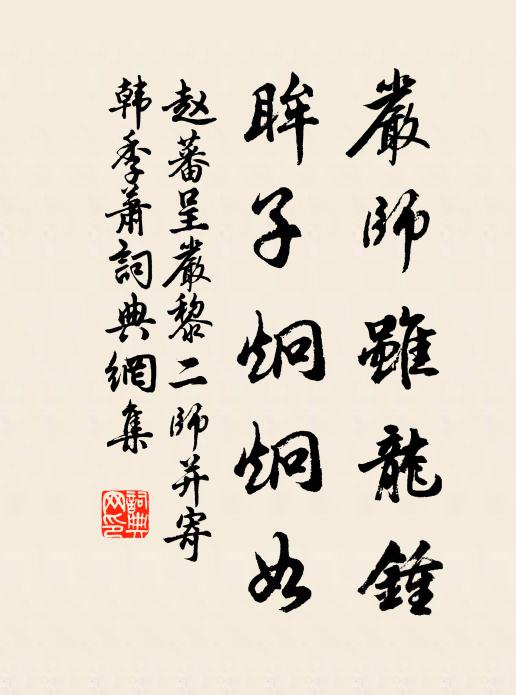 嚴師雖龍鍾
眸子炯炯如
赵蕃呈嚴黎二師并寄
韩季蕭詞典網集
詞典网印